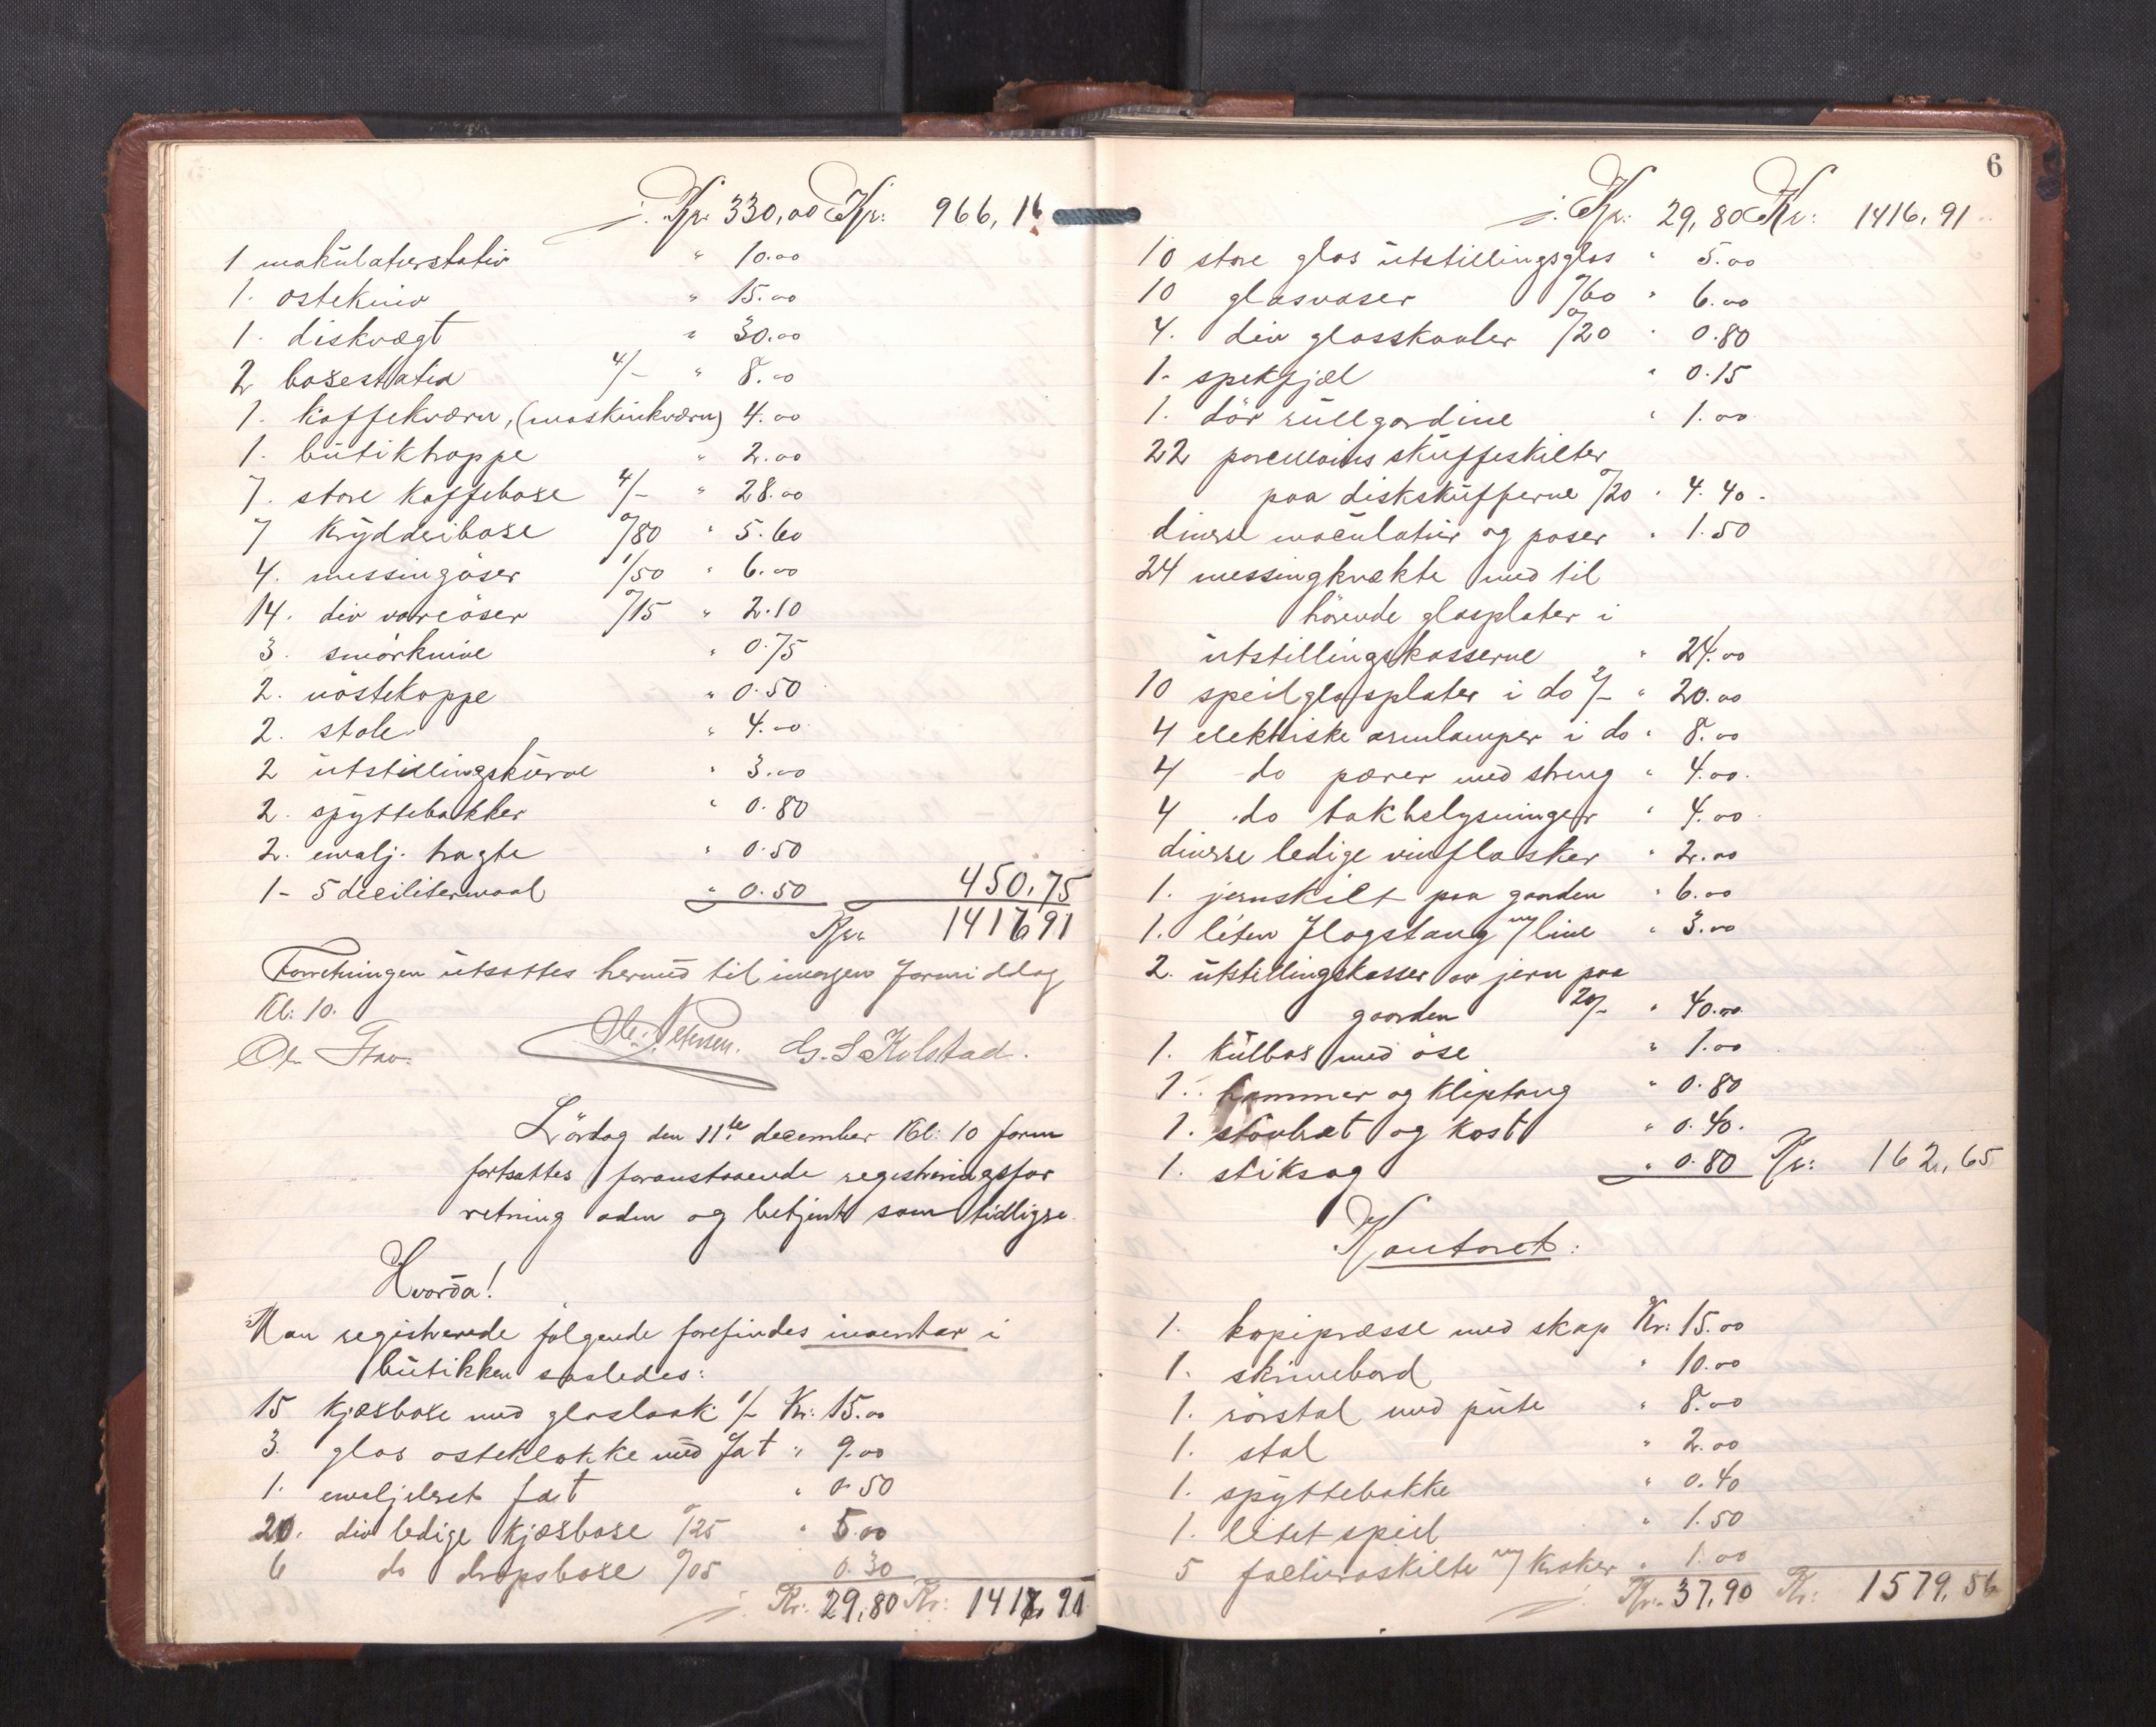 Kr. 330,00 Kr: 966,16
1 makulaturstativ " 10.00
1. ostekniv " 15.00
1. diskvægt " 30.00
2 boxestativ 4/- " 8.00
1. kaffekværn, (maskinkværn) 4.00
1. butiktrappe " 2.00
7. store kaffeboxe 4/- " 28.00
7 krydderiboxe 0/80 " 5.60
4. messingöser 1/50 " 6.00
14. div vareöser 0/15 " 2.10
3. smörknive " 0.75
2. nöstekoppe " 0.50
2. stole " 4.00
2 utstillingskurve " 3.00
2. spyttebakker " 0.80
2. emalj. tragte " 0.50
1 - 5 decilitermaal " 0.50 450,75
Kr. 1416,91
Forretningen utsattes hermed til imorgen formiddag
Kl: 10.
Petersen. G. S. Kolstad.
Lördag den 11te december Kl: 10 form
fortsattes foranstaaende registreringsfor
retning aden og betjent som tidligre.
Hvorda!
Man registrerede følgende forefindes inventar i
butikken saaledes:
15 kjæxboxe med glaslaak 1/- Kr: 15.00
3. glas osteklokke med fat " 9.00
1. emaljeret fat " 0.50
20. div ledige kjæxboxe 0/25 " 5.00
6 do dropsboxe 0/05 0.30
Kr: 29,80 Kr: 1416,91
6
Kr: 29,80 Kr: 1416,91
10 store glas utstillingsglas " 5.00
10 glasvaser 0/60 " 6.00
4. div glasskaaler 0/20 " 0.80
1. spekfjæl " 0.15
1. dör rullgardine " 1.00
22 porcellains skuffeskilter
paa diskskufferne 0/20 " 4.40
diverse maculatur og poser " 1.50
24 messingknekte med til
hörende glasplater i
utstillingskasserne " 24.00
10 speilglasplater i do 2/- " 20.00
4 elektriske armlamper i do " 8.00
4 do pærer med streng " 4.00.
4 do takbelysninger " 4.00
diverse ledige vinflasker " 2.00
1. jernskilt paa gaarden " 6.00
1. liten flagstang m/ line " 3.00
2. utstillingskasser av jern paa
gaarden 20/- " 40.00
1. kulbox med öse " 1.00
1. hammer og kliptang " 0.80
1. stövbræt og kost " 0.40.
1. stiksag " 0.80 Kr: 162,65
Kontoret:
1. kopipresse med skap Kr: 15.00
1. skrivebord " 10.00
1. rörstol med pute " 8.00
1. stol " 2.00
1. spyttebakke " 0.40
1. litet speil " 1.50
5 facturaskilte m/ kroker " 1.00
Kr. 37,90 Kr: 1579,56